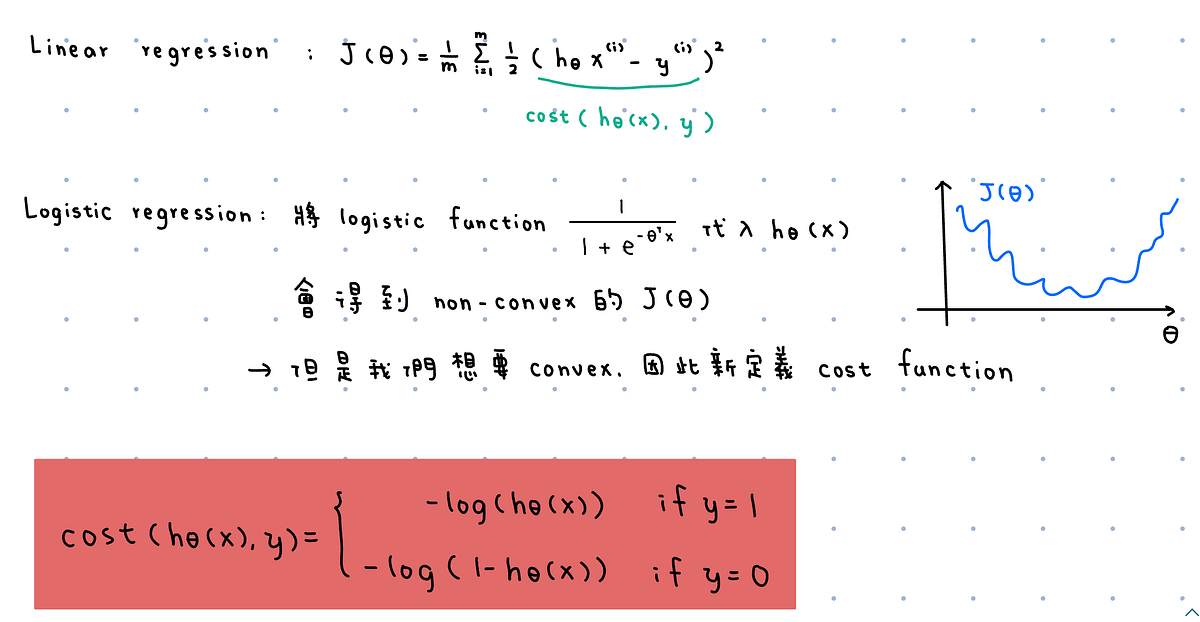 Linear regression : J(θ) = 1/m Σ_{i=1}^{m} 1/2 (hθ x^{(i)} - y^{(i)})^2
cost(hθ(x), y)
Logistic regression: 將 logistic function 1/(1 + e^{-θ^T x}) 代入 hθ(x)
J(θ)
會得到 non-convex 的 J(θ)
θ
→ 但是我們想要 convex. 因此新定義 cost function
cost(hθ(x), y) = { -log(hθ(x)) if y = 1
-log(1 - hθ(x)) if y = 0